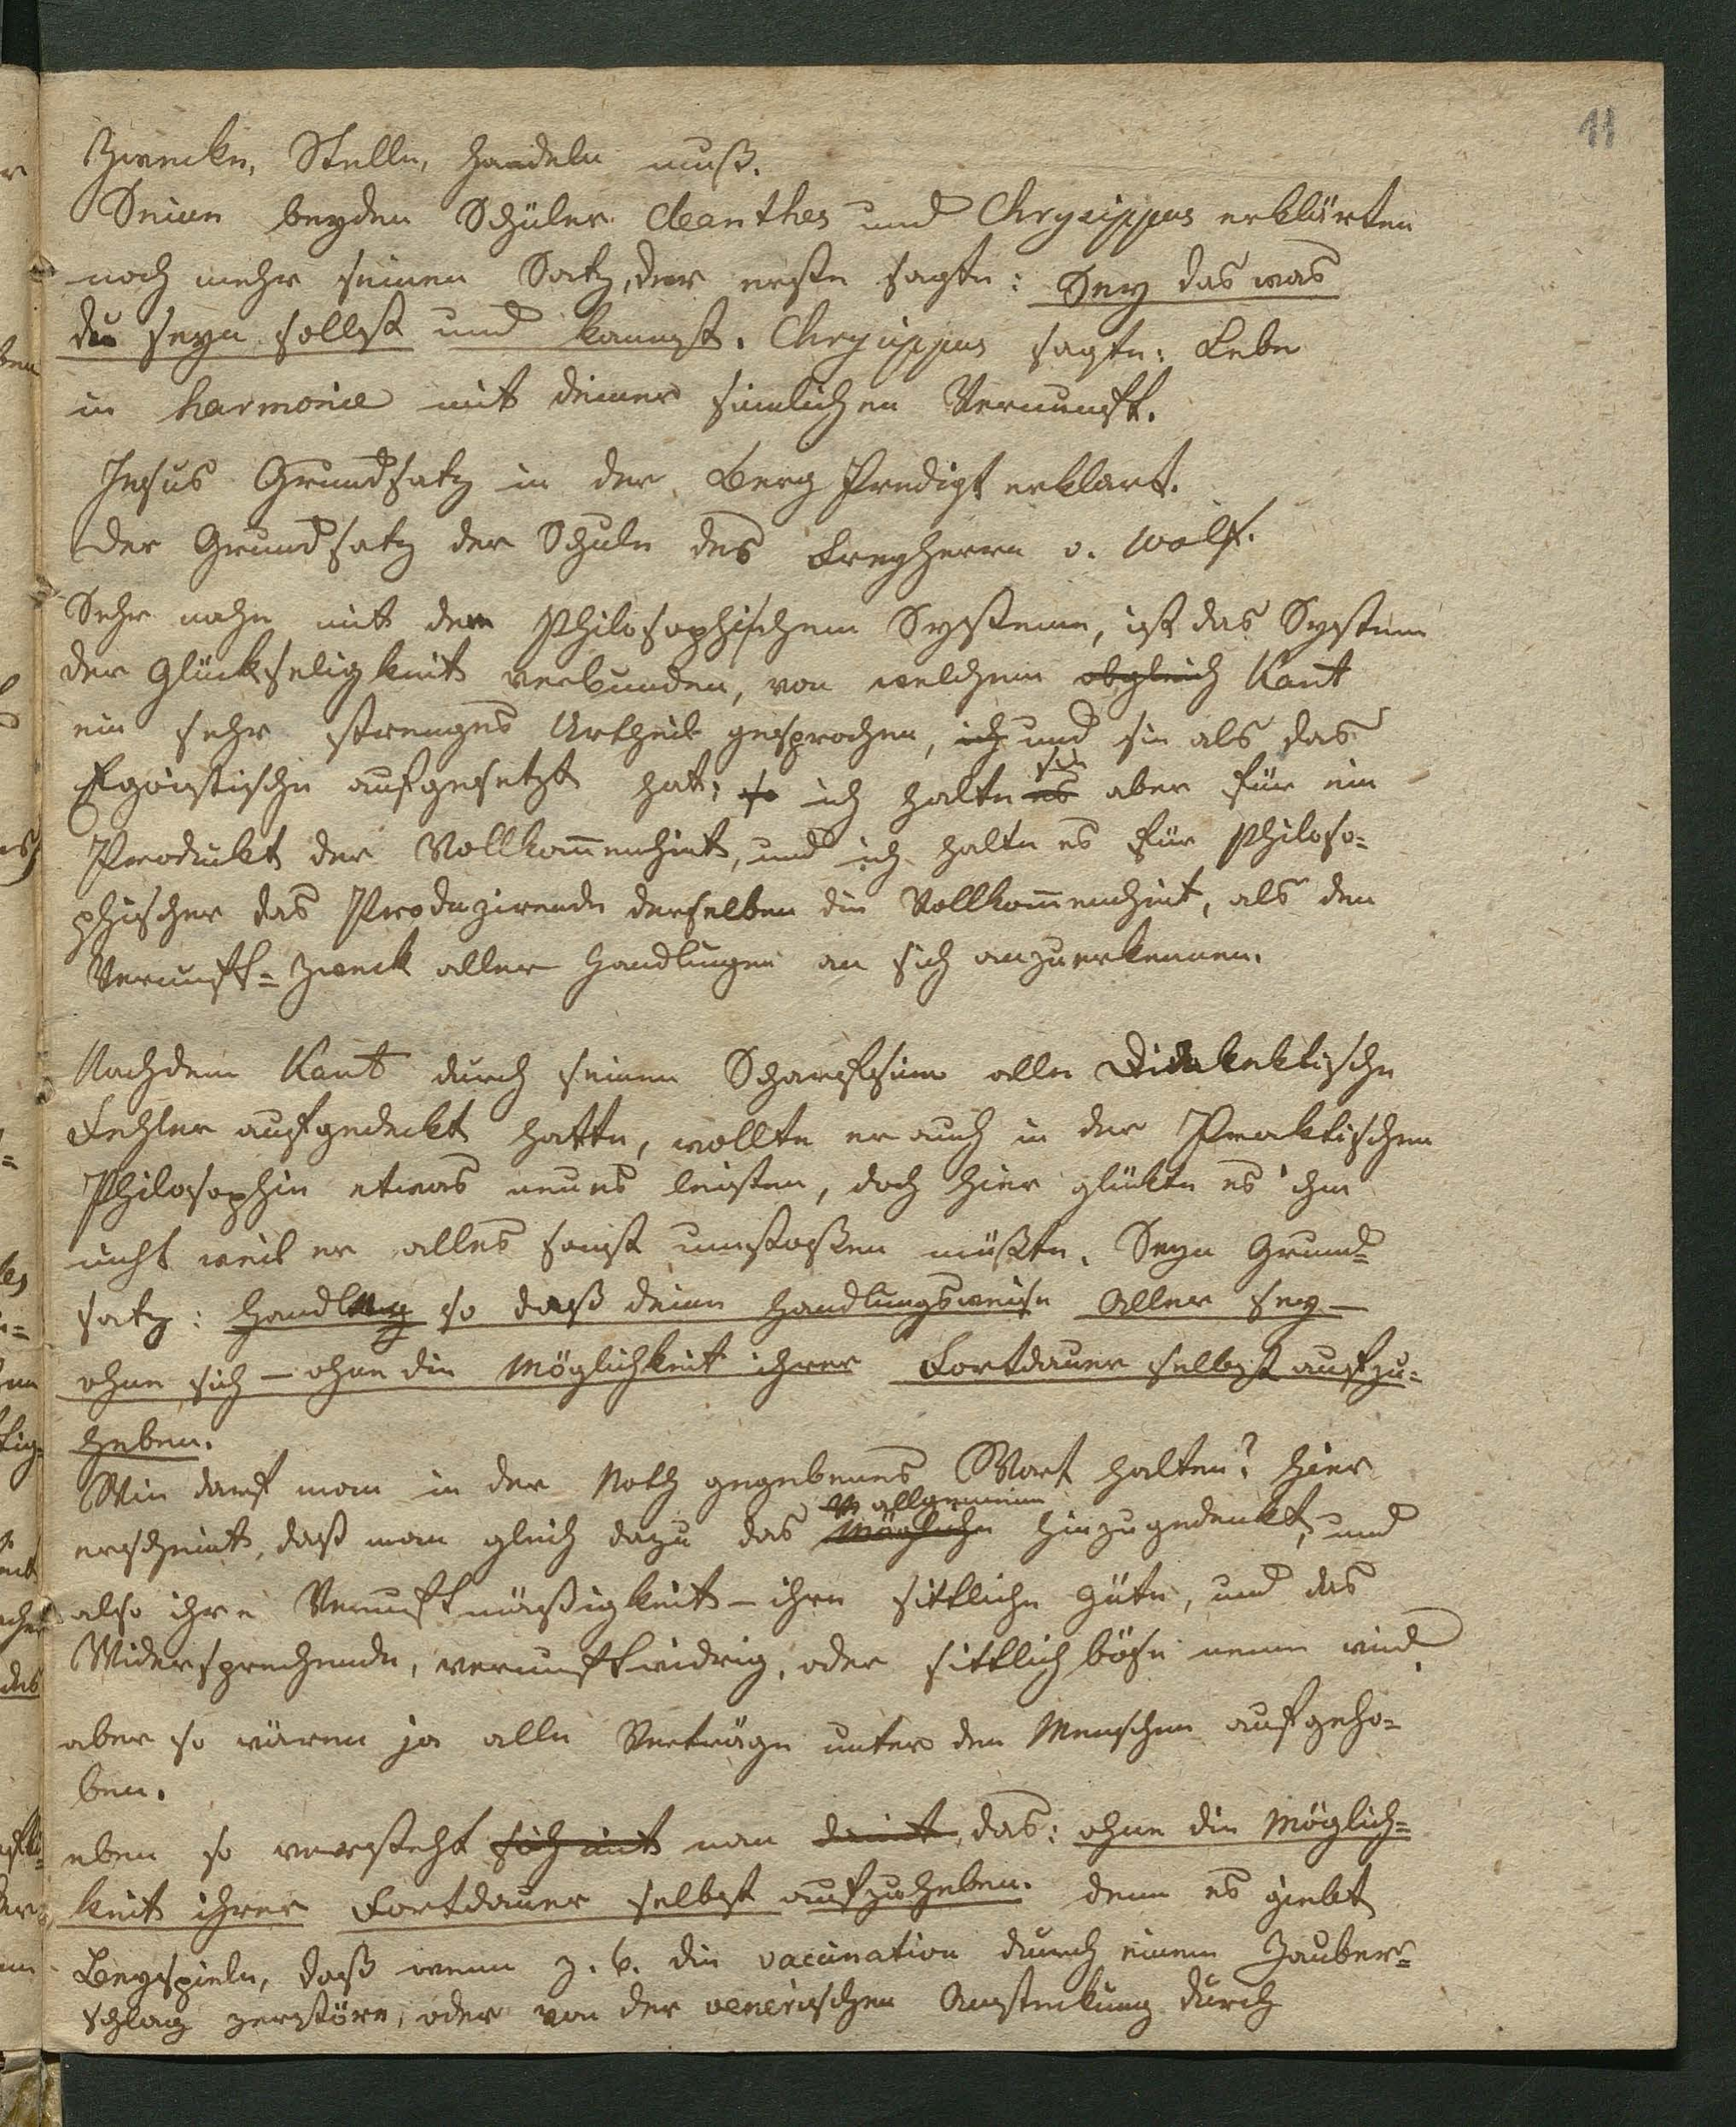 11
Zwecke, Stelle, handeln muß.
Seine beyden Schüler Cleanthes und Chrysippus erklärten
noch mehr seinen Satz, der erste sagte: Sey das was
du seyn sollst und kannst. Chrysippus sagte: Lebe
in harmonie mit deiner sinnlichen Vernunft.
Jesus Grundsatz in der Berg Predigt erklart.
Der Grundsatz der Schule des Freyherrn v. Wolf.
Sehr nahe mit dem Philosophischem Systeme, ist das System
der Glückseligkeit verbunden, von welchem obgleich Kant
ein sehr strenges Urtheil gesprochen, ich und sie als das
Egoistische aufgesetzt hat; so ich halte es sie aber für ein
Produkt der Vollkom̅enheit, und ich halte es für Philoso-
phischer das Produzirende derselben die Vollkom̅enheit, als den
Vernunft-Zweck aller Handlungen an sich anzuerkennen.
Nachdem Kant durch seinen Scharfsinn alle Dialektische
Fehler aufgedeckt hatte, wollte er auch in der Praktischen
Philosophie etwas neues leisten, doch hier glükte es ihm
nicht weil er alles sonst umstoßen müßte. Seyn Grund-
satz: Handle so daß deine Handlungsweise Aller sey –
ohne sich – ohne die Möglichkeit ihrer Fortdauer selbst aufzu-
heben.
Wie darf man in der Noth gegebenes Wort halten? hier
erscheint, daß man gleich dazu das allgemeine
Mögliche hinzugedenkt, und
also ihre Vernunftmäßigkeit – ihre sittliche Güte, und das
Widersprechende, vernunftwidrig, oder sittlich böse nenen wird,
aber so wären ja alle Verträge unter den Menschen aufgeho-
ben.
eben so versteht sich mit man damit, das: ohne die Möglich-
keit ihrer Fortdauer selbst aufzuheben. denn es giebt
Beyspiele, daß wenn z. b. die vaccination durch einem Zauber-
schlag zerstöre, oder von der venerischen Ansteckung durch